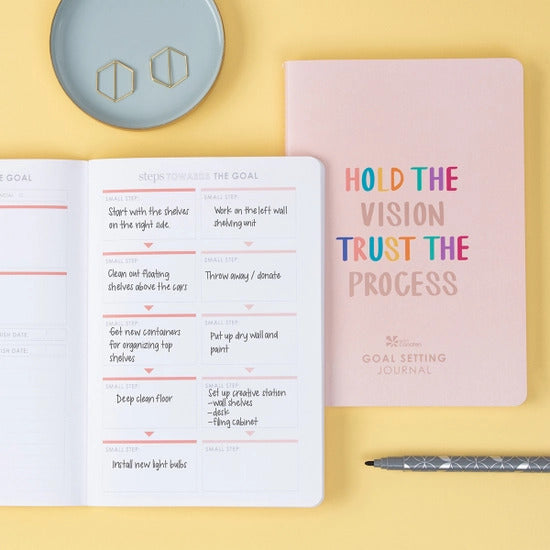 E GOAL
NCIAL
ISH DATE:
ISH DATE:
steps TOWARDS THE GOAL
SMALL STEP:
Start with the shelves
on the right side.
SMALL STEP:
Work on the left wall
shelving unit
SMALL STEP:
Clean out floating
shelves above the cars
SMALL STEP:
Throw away / donate
SMALL STEP:
Get new containers
for organizing top
shelves
SMALL STEP:
Put up dry wall and
paint
SMALL STEP:
Deep clean floor
SMALL STEP:
Set up creative station
-wall shelves
-desk
-filing cabinet
SMALL STEP:
Install new light bulbs
SMALL STEP:
HOLD THE
VISION
TRUST THE
PROCESS
GOAL SETTING
JOURNAL